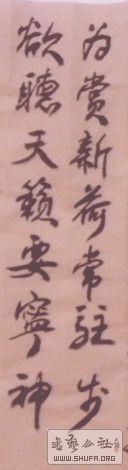 为赏新荷常驻步
欲聽天籁要寧神
书艺公社
WWW.SHUFA.ORG